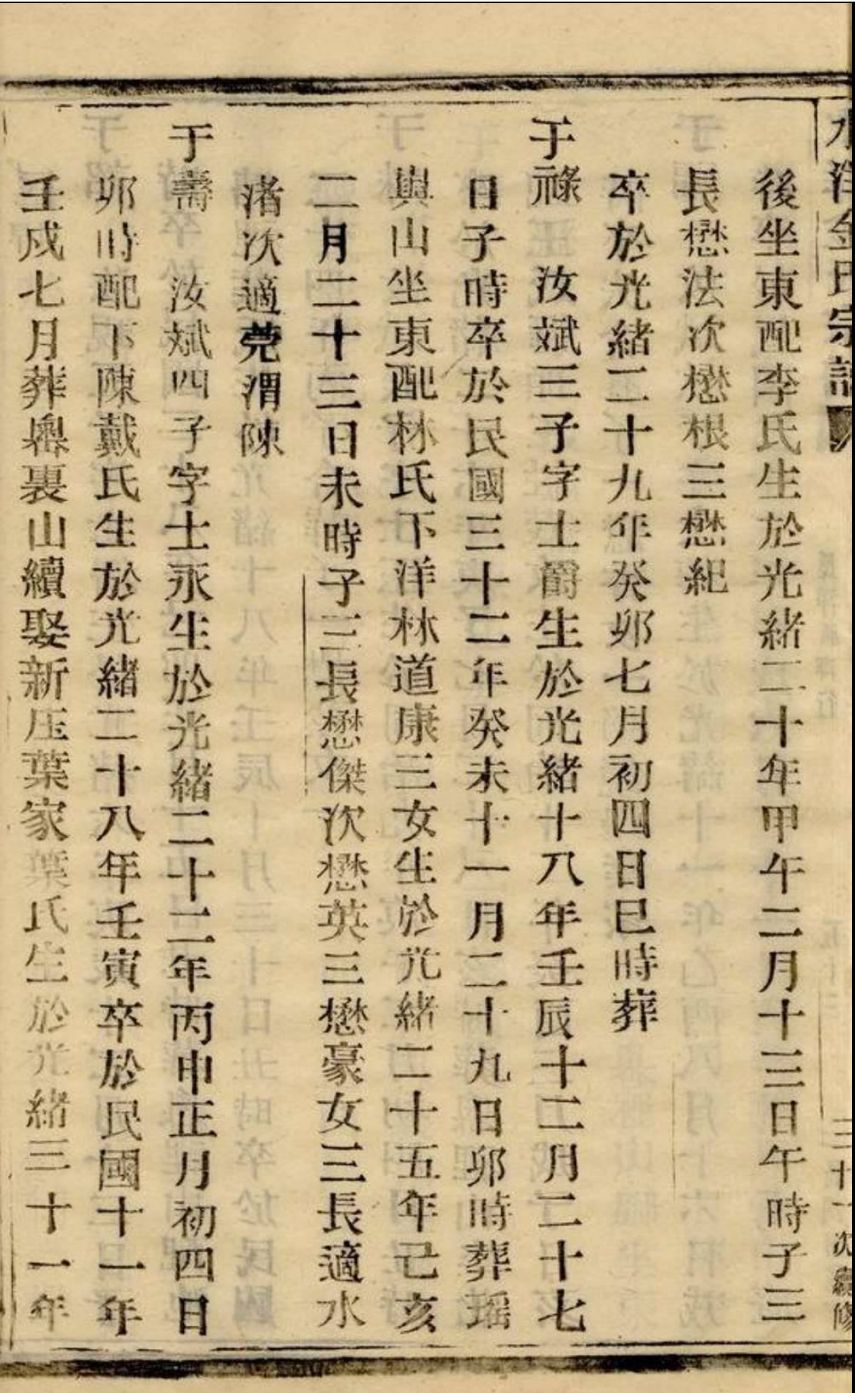 水洋金氏宗譜
三十一次續修
後坐東配李氏生於光緒二十年甲午二月十三日午時子三
長懋法次懋根三懋紀
卒於光緒二十九年癸卯七月初四日巳時葬
于祿 汝斌三子字士爵生於光緒十八年壬辰十二月二十七
日子時卒於民國三十二年癸未十一月二十九日卯時葬瑶
與山坐東配林氏下洋林道康三女生於光緒二十五年己亥
二月二十三日未時子三長懋傑次懋英三懋豪女三長適水
渚次適莞渭陳
于壽 汝斌四子字士永生於光緒二十二年丙申正月初四日
卯時配下陳戴氏生於光緒二十八年壬寅卒於民國十一年
壬戌七月葬嶴裏山續娶新压葉家葉氏生於光緒三十一年